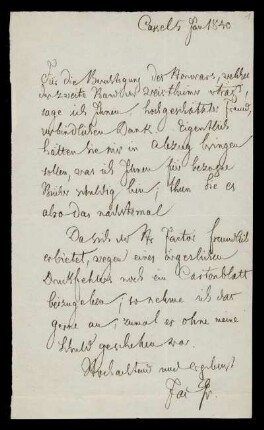 Cassel 5 Jan 1840
Für die Berichtigung des Honorars, welches
der zweite Band der weisthümer
sage ich Ihnen, hochgeschätzter Freund,
verbindlichen Dank. Eigentlich
hätten Sie mir in Abzug bringen
sollen, was ich Ihnen für bezogne
Bücher schuldig bin; thun Sie es
also das nächstemal
Da sich der Hr Factor freundlich
erbietet, wegen eines ärgerlichen
Druckfehlers noch ein Cartonblatt
beizugeben; so nehme ich das
gerne an; zumal er ohne meine
Schuld geschehen war.
Hochachtend und ergebenst
Jac Gr.